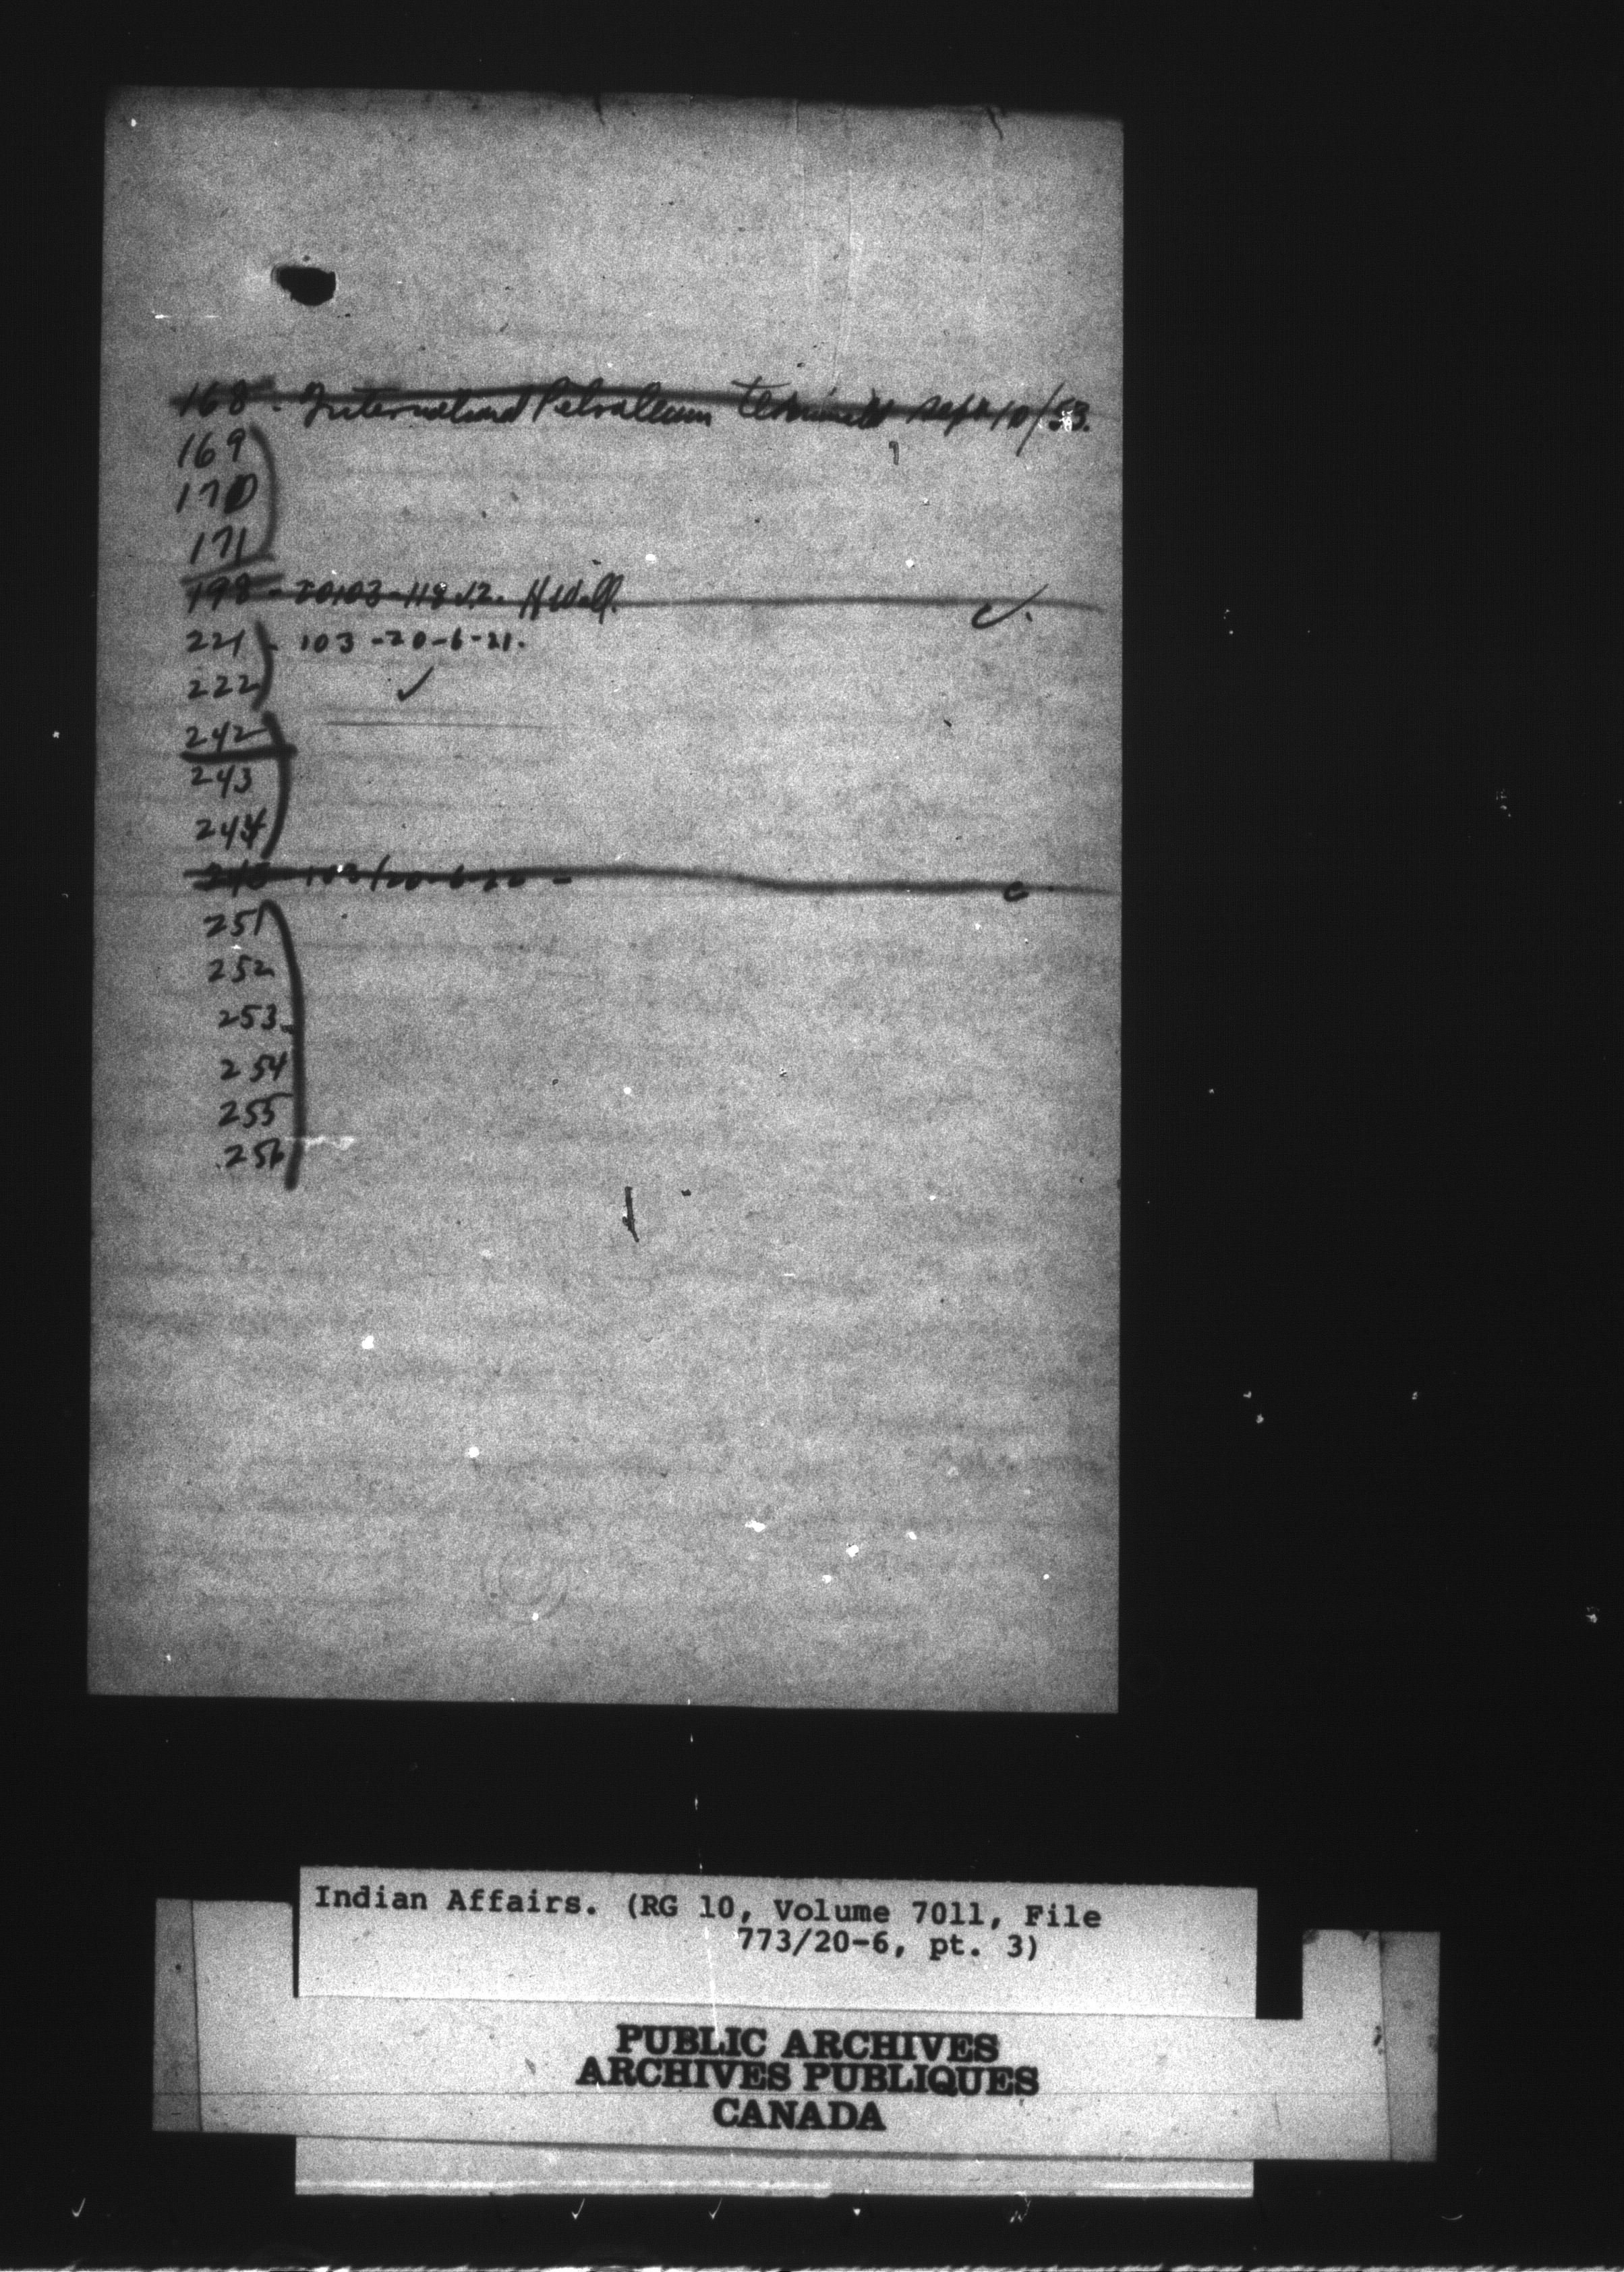 168 - International Petroleum terminated Sept 10/53.
169
170
171
198 - 20103-118
221 - 103-20-6-21.
222 ✓
242
243
244
103/20-6-22 -
251
252
253
254
255
256
Indian Affairs. (RG 10, Volume 7011, File
773/20-6, pt. 3)
PUBLIC ARCHIVES
ARCHIVES PUBLIQUES
CANADA